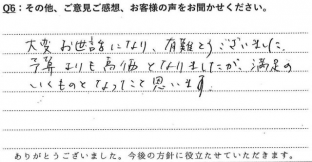 Q6：その他、ご意見ご感想、お客様の声をお聞かせください。
大変お世話になり、有難とうございました。
予算よりも高価となりましたが、満足の
いくものとなったこと思います
ありがとうございました。今後の方針に役立たせていただきます。